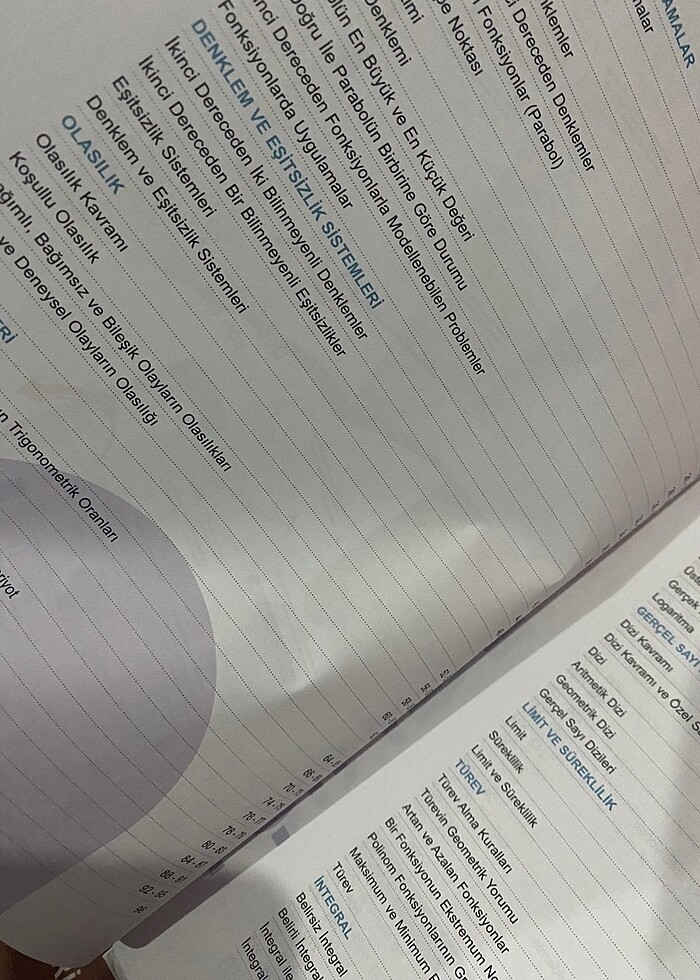 AMALAR
malar
klemler
Dereceden Denklemler
Fonksiyonlar (Parabol)
Noktası
Denklemi
En Büyük ve En Küçük Değeri
Doğru İle Parabolün Birbirine Göre Durumu
Dereceden Fonksiyonlarla Modellenebilen Problemler
Fonksiyonlarda Uygulamalar
DENKLEM VE EŞİTSİZLİK SİSTEMLERİ
İkinci Dereceden İki Bilinmeyenli Denklemler
İkinci Dereceden Bir Bilinmeyenli Eşitsizlikler
Eşitsizlik Sistemleri
Denklem ve Eşitsizlik Sistemleri
OLASILIK
Olasılık Kavramı
Koşullu Olasılık
Bağımsız ve Bileşik Olayların Olasılıkları
ve Deneysel Olayların Olasılığı
Trigonometrik Oranları
70-
74-
76-77
78-79
80-83
84-87
88-91
92-95
96
Gerçek
Logaritma
GERÇEL SAYI
Dizi Kavramı
Dizi Kavramı ve Özel
Dizi
Aritmetik Dizi
Geometrik Dizi
Gerçel Sayı Dizileri
LİMİT VE SÜREKLİLİK
Limit
Süreklilik
Limit ve Süreklilik
TÜREV
Türev Alma Kuralları
Türevin Geometrik Yorumu
Artan ve Azalan Fonksiyonlar
Bir Fonksiyonun Ekstremum
Polinom Fonksiyonlarının
Maksimum ve Minimum
Türev
İNTEGRAL
Belirsiz İntegral
Belirli İntegral
İntegral ile
İntegral